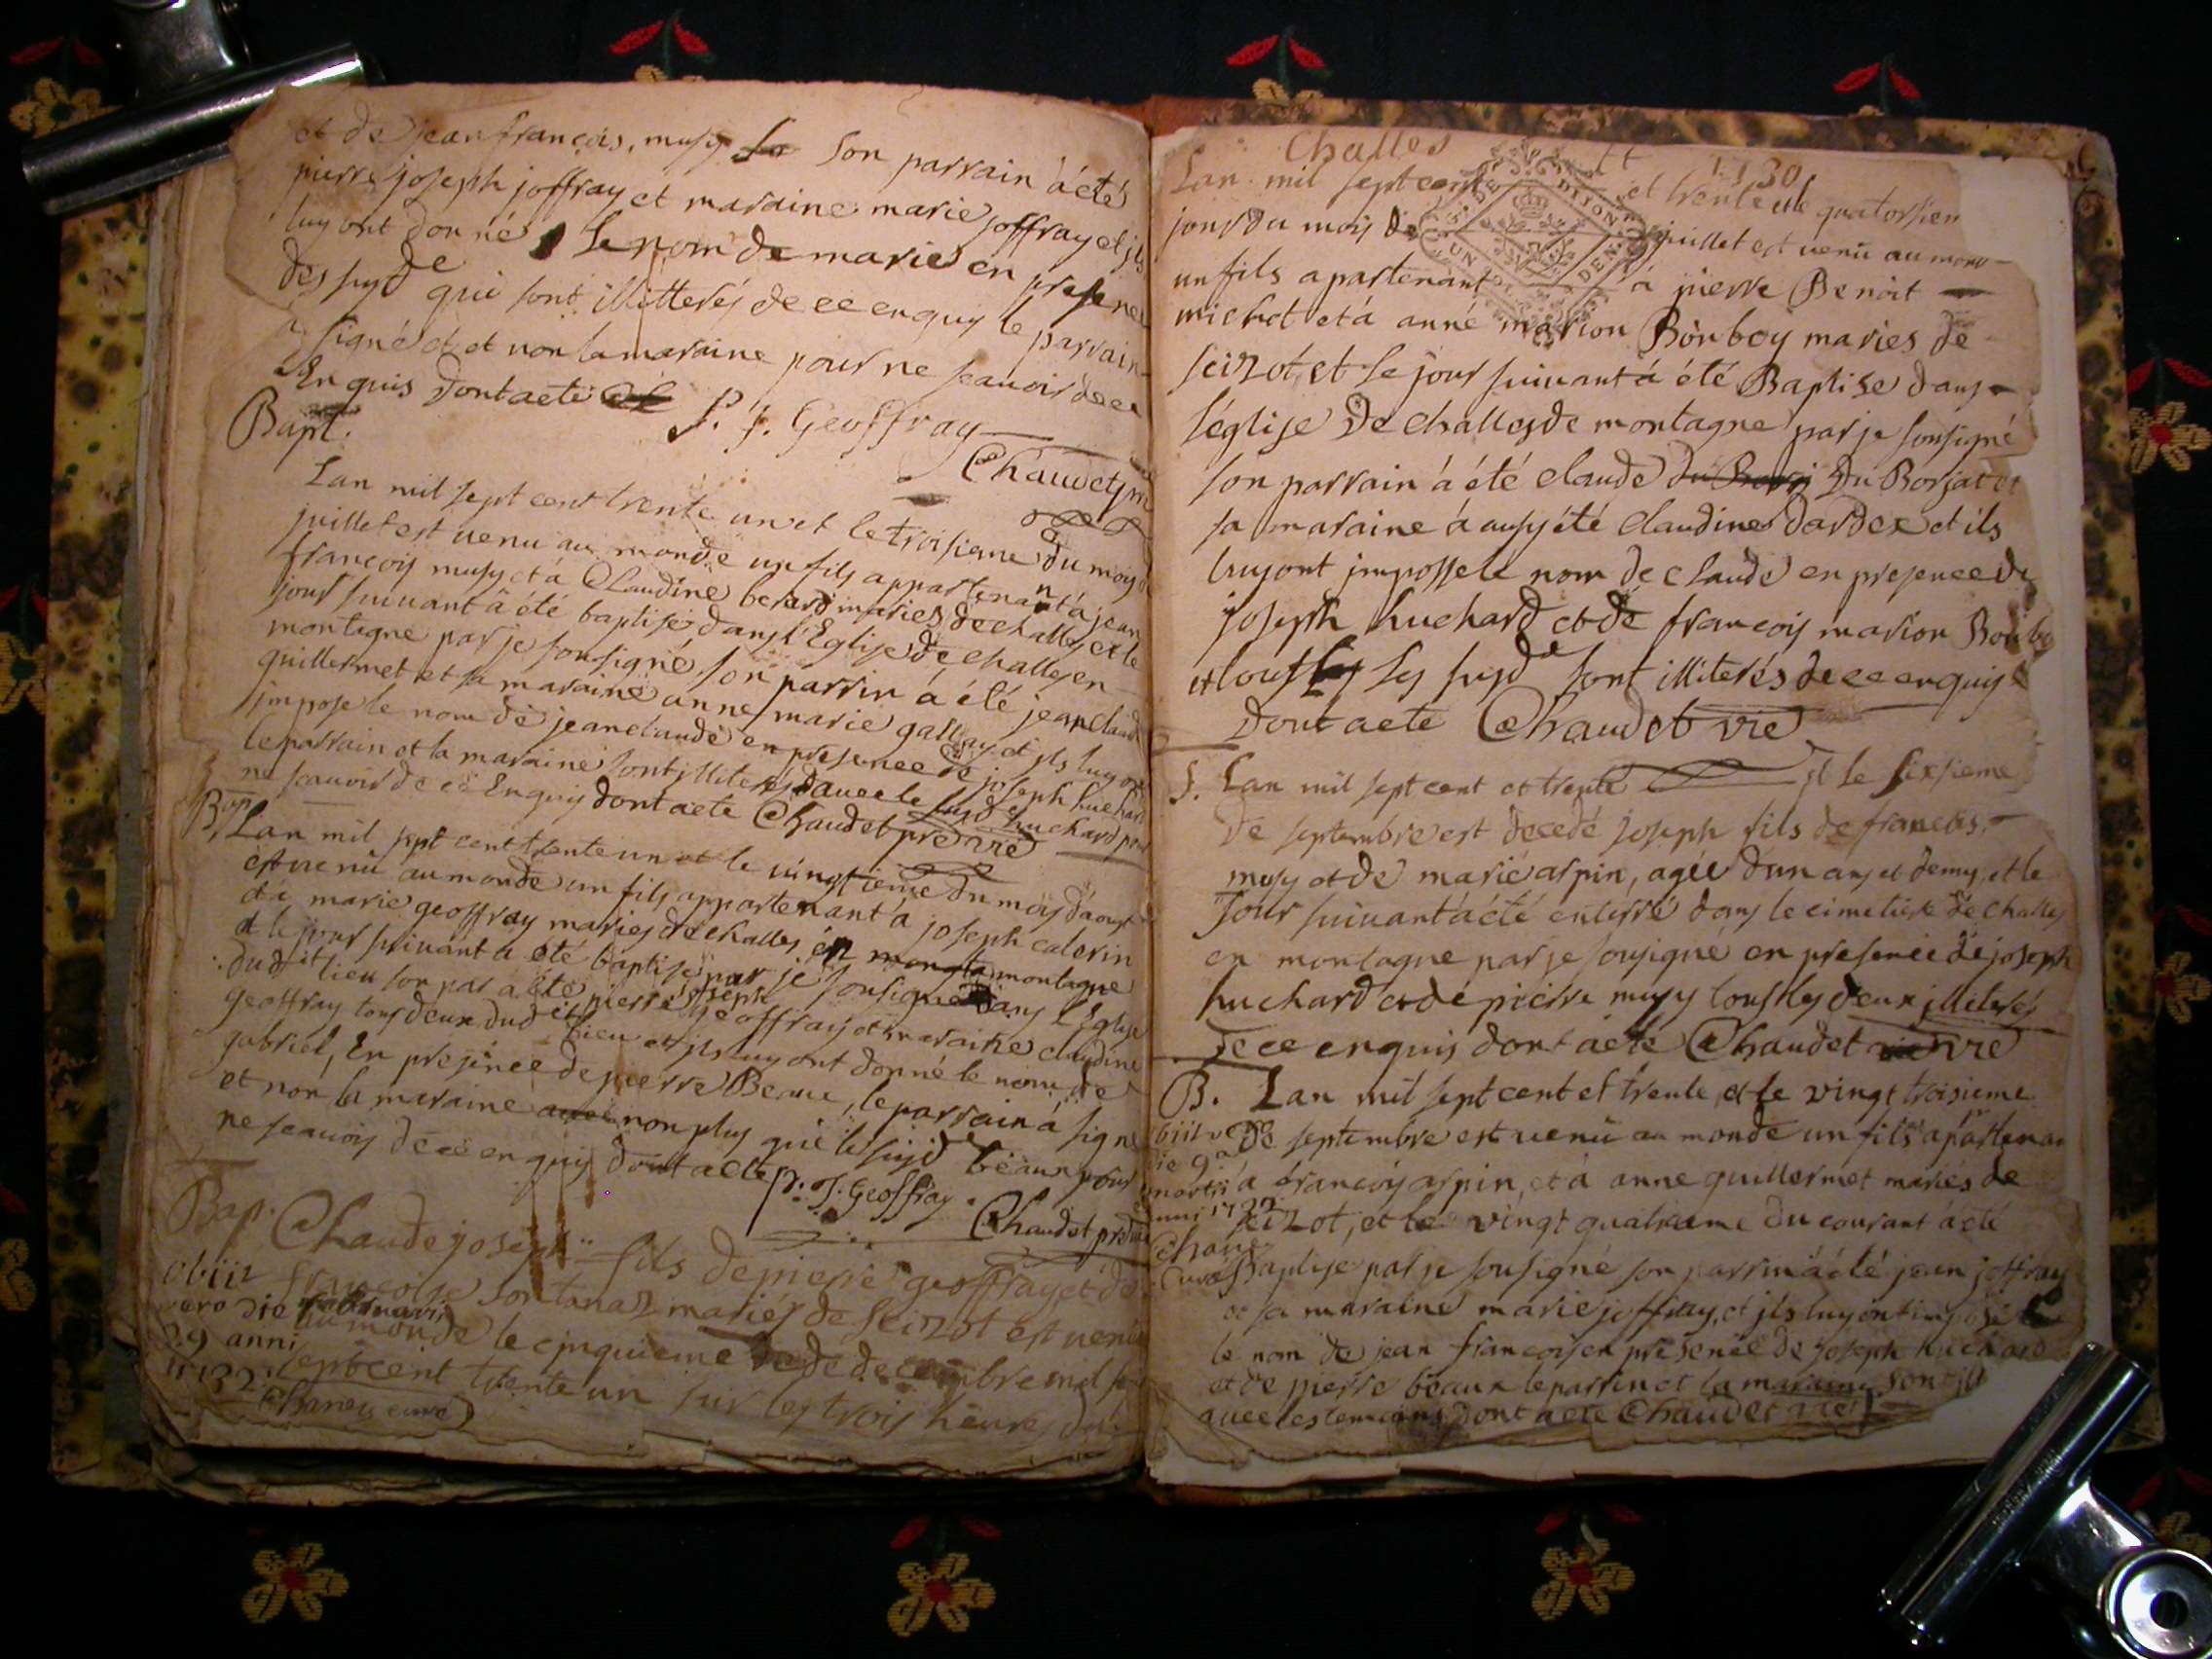 et de jean françois, musy son parrain à été
pierre joseph joffray et maraine marie joffray et jls
luy ont donné le nom de marie en presence
des sus.d qui sont illitterés de ce enquis le parrain
a signé et non la maraine pour ne scauoir de ce
Enquis dont acte
P. j. Geoffray
Bapt.
Chaudet
Lan mil sept cent trente un et le troisieme du moys
juillet est uenu au monde un fils appartenant à jean
francois musy et à Claudine berard maries de challes et le
jour suiuant à été baptisé dans l'Eglise de challes en
montagne par je sousigné son parrin à été jean claude
guillermet et sa maraine anne marie gallay et jls luy ont
imposé le nom de jean claude en presence de joseph huchard
le parrain et la maraine sont illiterés auec le susd huchard pour
ne scauoir de ce Enquis dont acte Chaudet pre vre
Bap.
Lan mil sept cent trente un et le uingtieme du moys d'aoust
est uenu au monde un fils appartenant à joseph caterin
et à marie geoffray maries de challes en montagne
et le jour suiuant a eté baptisé par je sousigné dans l'Eglise
dudit lieu son par à été pierre joseph geoffray et maraine claudine
geoffray tous deux dudit lieu et jls luy ont donné le nom de
gabriel, En presence de pierre Beaux, le parrain à signé
et non la maraine non plus que le susd beaux pour
ne scauoir de ce enquis dont acte P. J. Geoffray
Chaudet pre vre
Bap. Claude joseph fils de pierre geoffray et de
francoise fontanaz mariés de Seizot est uenu
au monde le cinquieme de decembre mil sept
cent trente un sur les trois heures du
obiit
vero die
29 anni
1732
Chaney curé
Challes
1730
Lan mil sept cent et trente et le quatorsien
jour du mois de juillet est uenu au mon
un fils apartenant à pierre Benoit
michot et à anne marion Bonboy maries de
seizot, et le jour suiuant à été Baptise dans
l'église De challes de montagne par je sousigné
son parrain à été claude Du Borjat et
sa maraine à ausy été claudine dardex et ils
luy ont impossé le nom de claude en presence de
joseph huchard et de francois marion Bonbo
et tous les susd sont illiterés de ce enquis
Dont acte Chaudet vre
S. Lan mil sept cent et trente et le sixsieme
de septembre est decedé joseph fils de francois
musy et de marie arpin, agée d'un ans et demy, et le
jour suiuant à été enterré dans le cimetiere de challes
en montagne par je sousigné en presence de joseph
huchard et de pierre musy tous les deux illiterés
de ce enquis dont acte Chaudet vre
B. Lan mil sept cent et trente, et le vingt troisieme
de septembre est uenu au monde un fils apartenan
à francois arpin, et à anne guillermet mariés de
seizot, et le vingt quatrieme du courant à été
Baptise par je sousigné son parrin à été jean joffray
et sa maraine marie joffray, et jls luy ont imposé
le nom de jean francois en presence de joseph huchard
et de pierre beaux le parrin et la maraine sont ill
auec les temoins dont acte Chaudet vre
obiit vero
die 9a
martii
anni 1732
Chaney
Curé